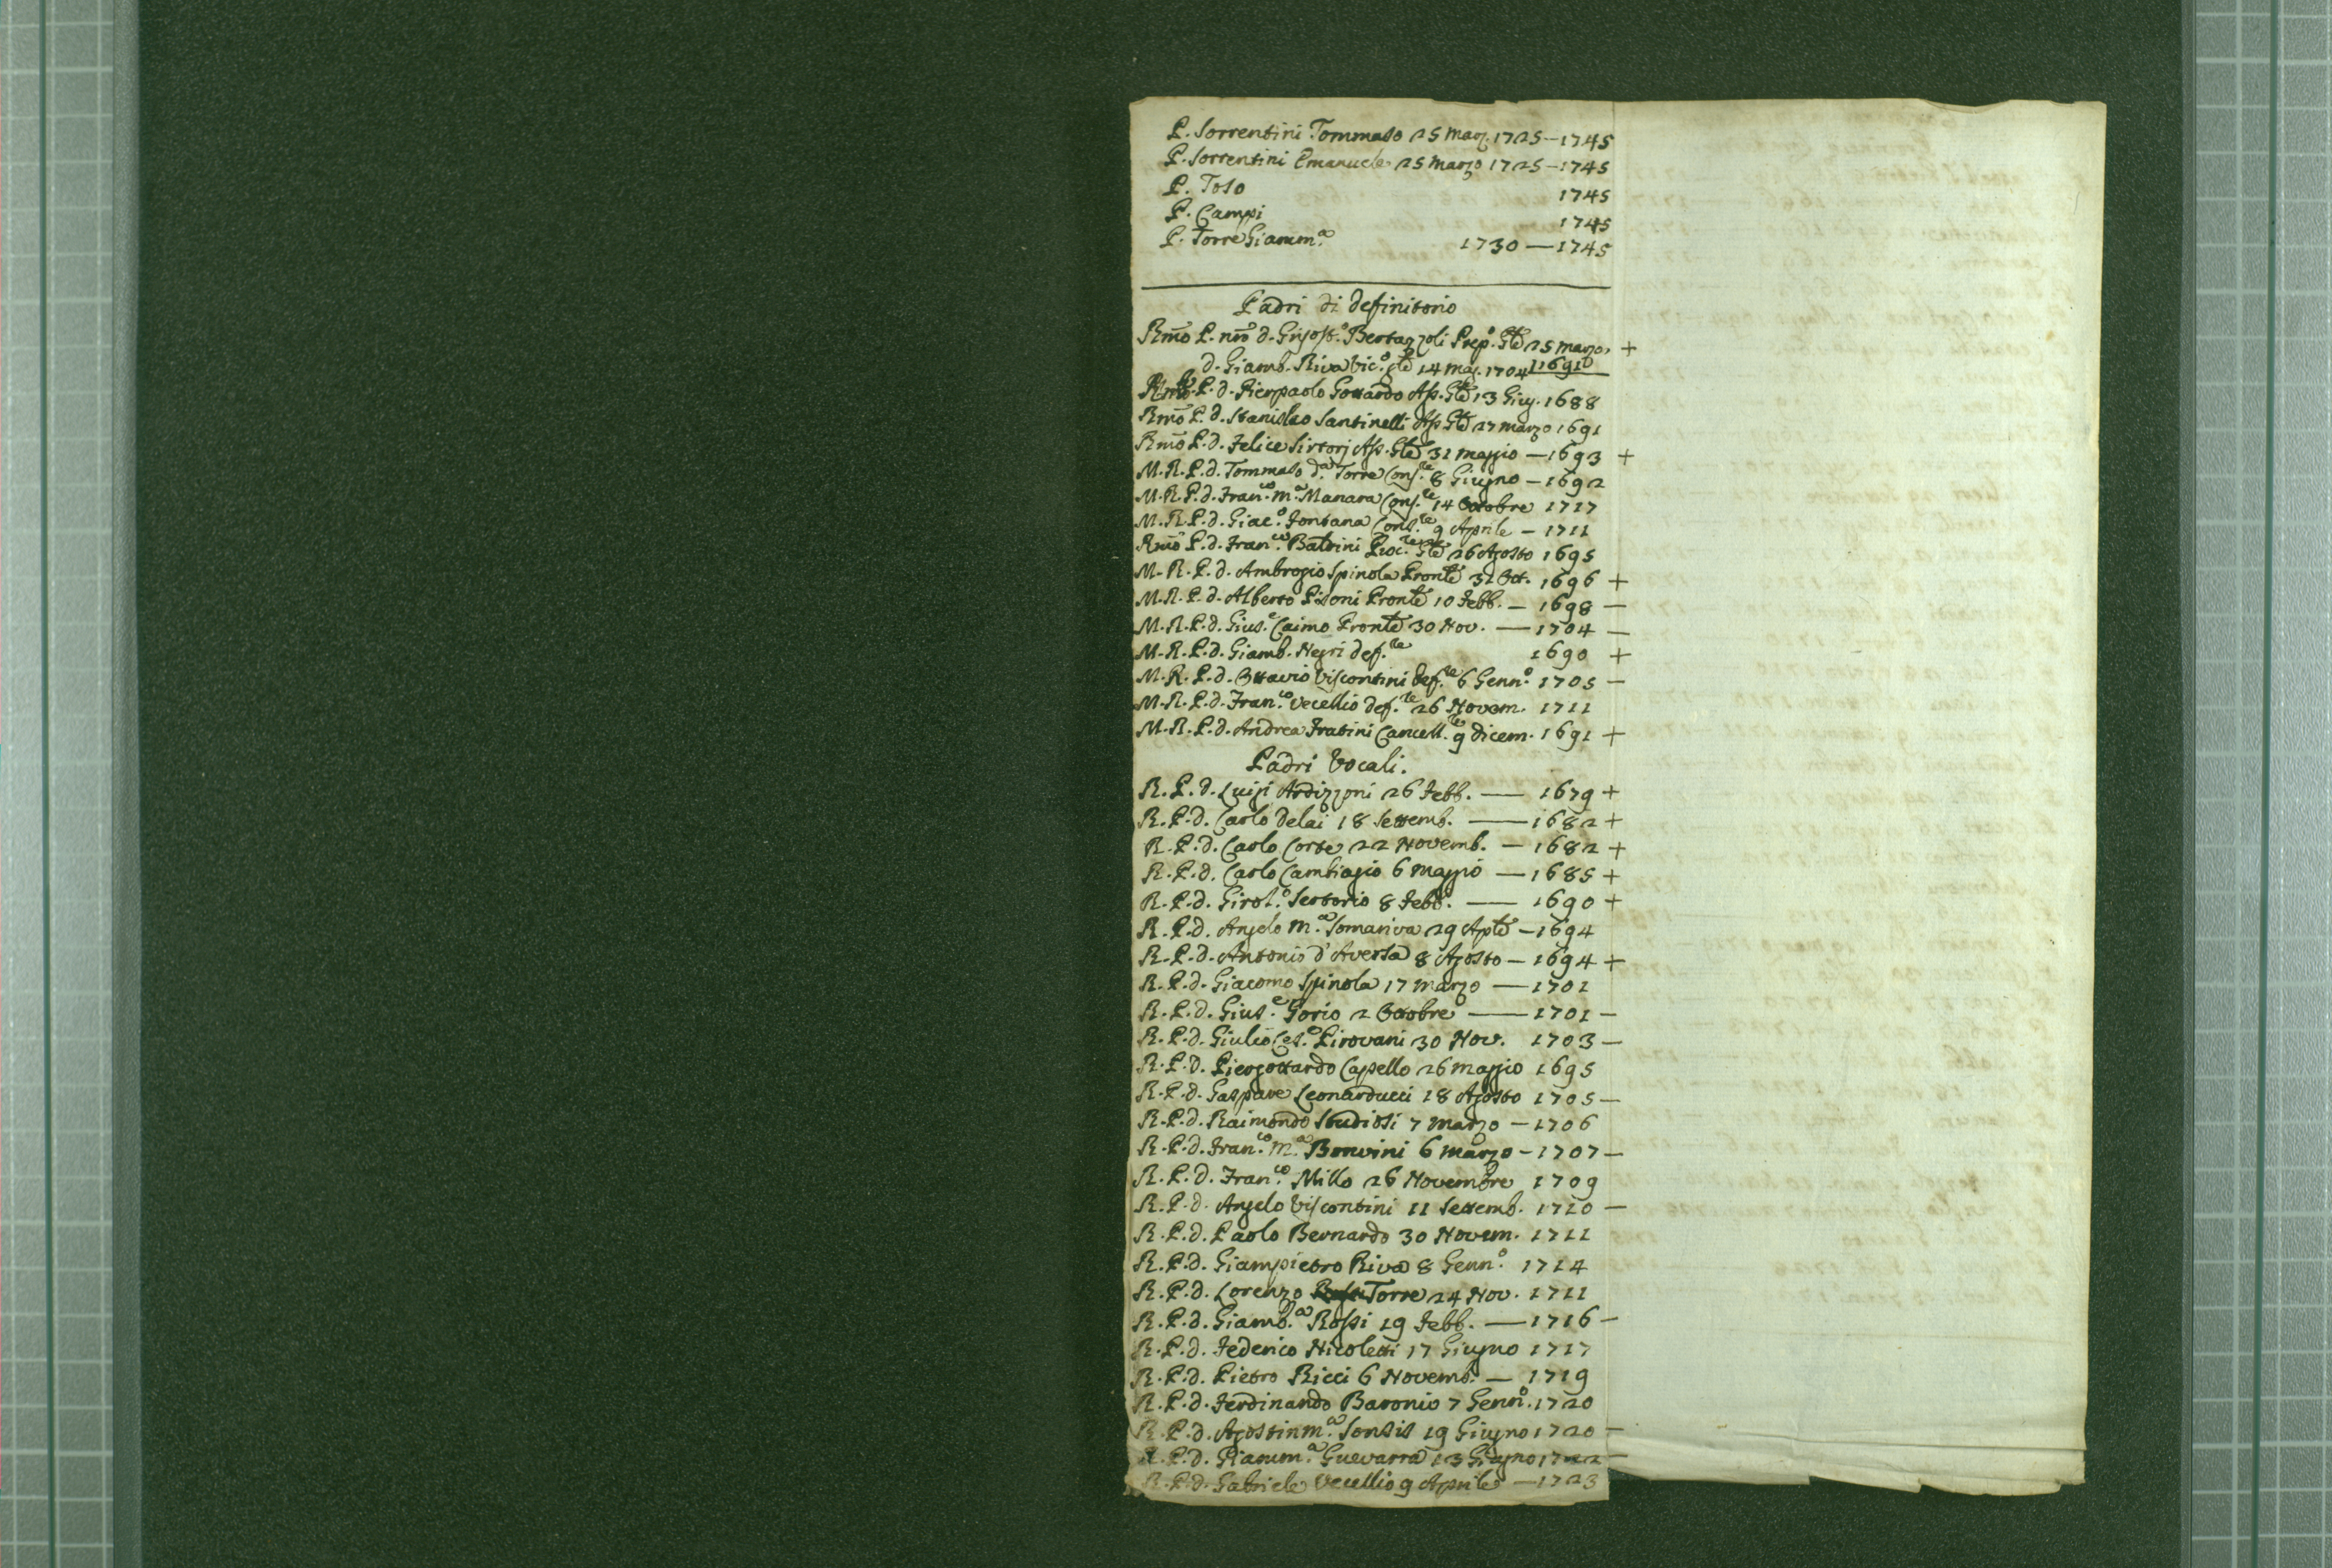 P. Sorrentini Tommaso 25 Marz. 1725–1745
P. Sorrentini Emanuele 25 Marzo 1725–1745
P. Toso 1745
P. Campi 1745
P. Torre Giamm.ª 1730 — 1745
Padri di definitorio
Rmo P. nro d. Grisost.º Bertazzoli Prep.º Gle 25 marzo +
d. Giamb. Riva Vic.º gle 14 Mag. 1704 1691
P. d. Pierpaolo Gottardo Ass. Gle 13 Giug. 1688
Rmo P. d. Stanislao Santinelli Ass. Gle 27 marzo 1691
Rmo P. d. Felice Sirtorj Ass. Gle 31 maggio — 1693 +
M. R. P. d. Tommaso d.ª Torre Cons.re 8 Giugno — 1692
M. R. P. d. Fran.co m.ª Manara Cons.re 14 Ottobre 1717
M. R. P. d. Giac.º Fontana Cons.re 9 Aprile — 1711
Rmo P. d. Fran.co Baldini Proc.re Gle 26 Agosto 1695
M. R. P. d. Ambrogio Spinola Pronle 31 Ott. 1696 +
M. R. P. d. Alberto Pisoni Pronle 10 Febb. — 1698 —
M. R. P. d. Gius.e Caimo Pronle 30 Nov. — 1704 —
M. R. P. d. Giamb. Negri def.re 1690 +
M. R. P. d. Ottavio Viscontini def.re 6 Genn.º 1705 —
M. R. P. d. Fran.co Vecellio def.re 26 Novem. 1711
M. R. P. d. Andrea Fratini Cancell.re 9 dicem. 1691 +
Padri Vocali.
R. P. d. Luigi Ardizzoni 26 Febb. — 1679 +
R. P. d. Carlo Delai 18 Settemb. — 1682 +
R. P. d. Carlo Corte 22 Novemb. — 1682 +
R. P. d. Carlo Cambiagio 6 Maggio — 1685 +
R. P. d. Girol.º Sertorio 8 Febb. — 1690 +
R. P. d. Angelo M.ª Somariva 29 Aple — 1694
R. P. d. Antonio d'Aversa 8 Agosto — 1694 +
R. P. d. Giacomo Spinola 17 marzo — 1701
R. P. d. Gius.e Gorio 2 Ottobre — 1701 —
R. P. d. Giulio Ces.e Pirovani 30 Nov. 1703 —
R. P. d. Piergottardo Capello 26 maggio 1695
R. P. d. Gaspare Leonarducci 18 Agosto 1705 —
R. P. d. Raimondo Studiosi 7 Marzo — 1706
R. P. d. Fran.co M.ª Bonvini 6 marzo — 1707 —
R. P. d. Fran.co Millo 26 Novembre 1709
R. P. d. Angelo Viscontini 11 Settemb. 1710 —
R. P. d. Paolo Bernardo 30 Novem. 1711
R. P. d. Giampietro Riva 8 Genn.º 1714
R. P. d. Lorenzo Torre 24 Nov. 1711
R. P. d. Giamb.ª Rossi 19 Febb. — 1716 —
R. P. d. Federico Nicoletti 17 Giugno 1717
R. P. d. Pietro Ricci 6 Novemb. — 1719
R. P. d. Ferdinando Baronio 7 Genn.º 1720
R. P. d. Agostinm.ª Sonsis 19 Giugno 1720 —
R. P. d. Giamm.ª Guevarra 13 Giugno 1722 —
R. P. d. Gabriele Vecellio 9 Aprile — 1723